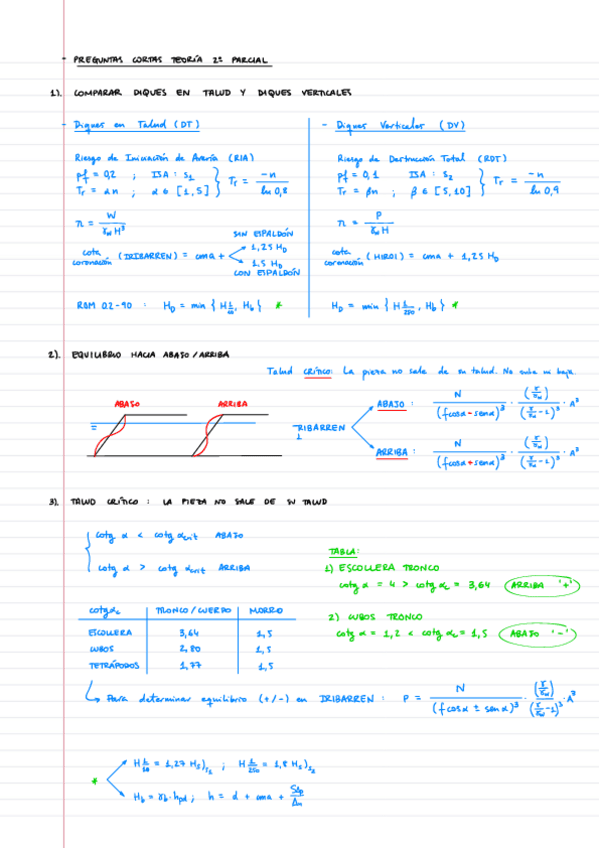 - PREGUNTAS CORTAS TEORÍA 2º PARCIAL
1). COMPARAR DIQUES EN TALUD Y DIQUES VERTICALES
- Diques en Talud (DT)
Riesgo de Iniciación de Avería (RIA)
pf = 0,2 ; ISA: S2
Tr = αn ; α ∈ [1,5] } Tr = -n / ln 0,8
n = W / γw H³
cota coronación (IRIBARREN) = cma +
SIN ESPALDÓN
1,25 HD
1,5 HD
CON ESPALDÓN
ROM 0.2-90 : HD = min { H 1/10, Hb } *
- Diques Verticales (DV)
Riesgo de Destrucción Total (RDT)
pf = 0,1 ISA: S2
Tr = βn ; β ∈ [5,10] } Tr = -n / ln 0,9
n = P / γw H
cota coronación (HIROI) = cma + 1,25 HD
HD = min { H 1/250, Hb } *
2). EQUILIBRIO HACIA ABAJO/ARRIBA
Talud CRÍTICO: La pieza no sale de su talud. No sube ni baja.
ABAJO ARRIBA
IRIBARREN
ABAJO : N / (f cosα - senα)³ · (γ/γw) / (γ/γw - 1)³ · A³
ARRIBA : N / (f cosα + senα)³ · (γ/γw) / (γ/γw - 1)³ · A³
3). TALUD CRÍTICO : LA PIEZA NO SALE DE SU TALUD
cotg α < cotg αcrit ABAJO
cotg α > cotg αcrit ARRIBA
TABLA:
1) ESCOLLERA TRONCO
cotg α = 4 > cotg αc = 3,64 ARRIBA '+'
2) CUBOS TRONCO
cotg α = 1,2 < cotg αc = 1,5 ABAJO '-'
cotg αc TRONCO/CUERPO MORRO
ESCOLLERA 3,64 1,5
CUBOS 2,80 1,5
TETRÁPODOS 1,77 1,5
Para determinar equilibrio (+/-) en IRIBARREN : P = N / (f cosα ± senα)³ · (γ/γw) / (γ/γw - 1)³ · A³
*
H 1/10 = 1,27 Hs) ; H 1/250 = 1,8 Hs)
Hb = γb · hpd ; h = d + cma +